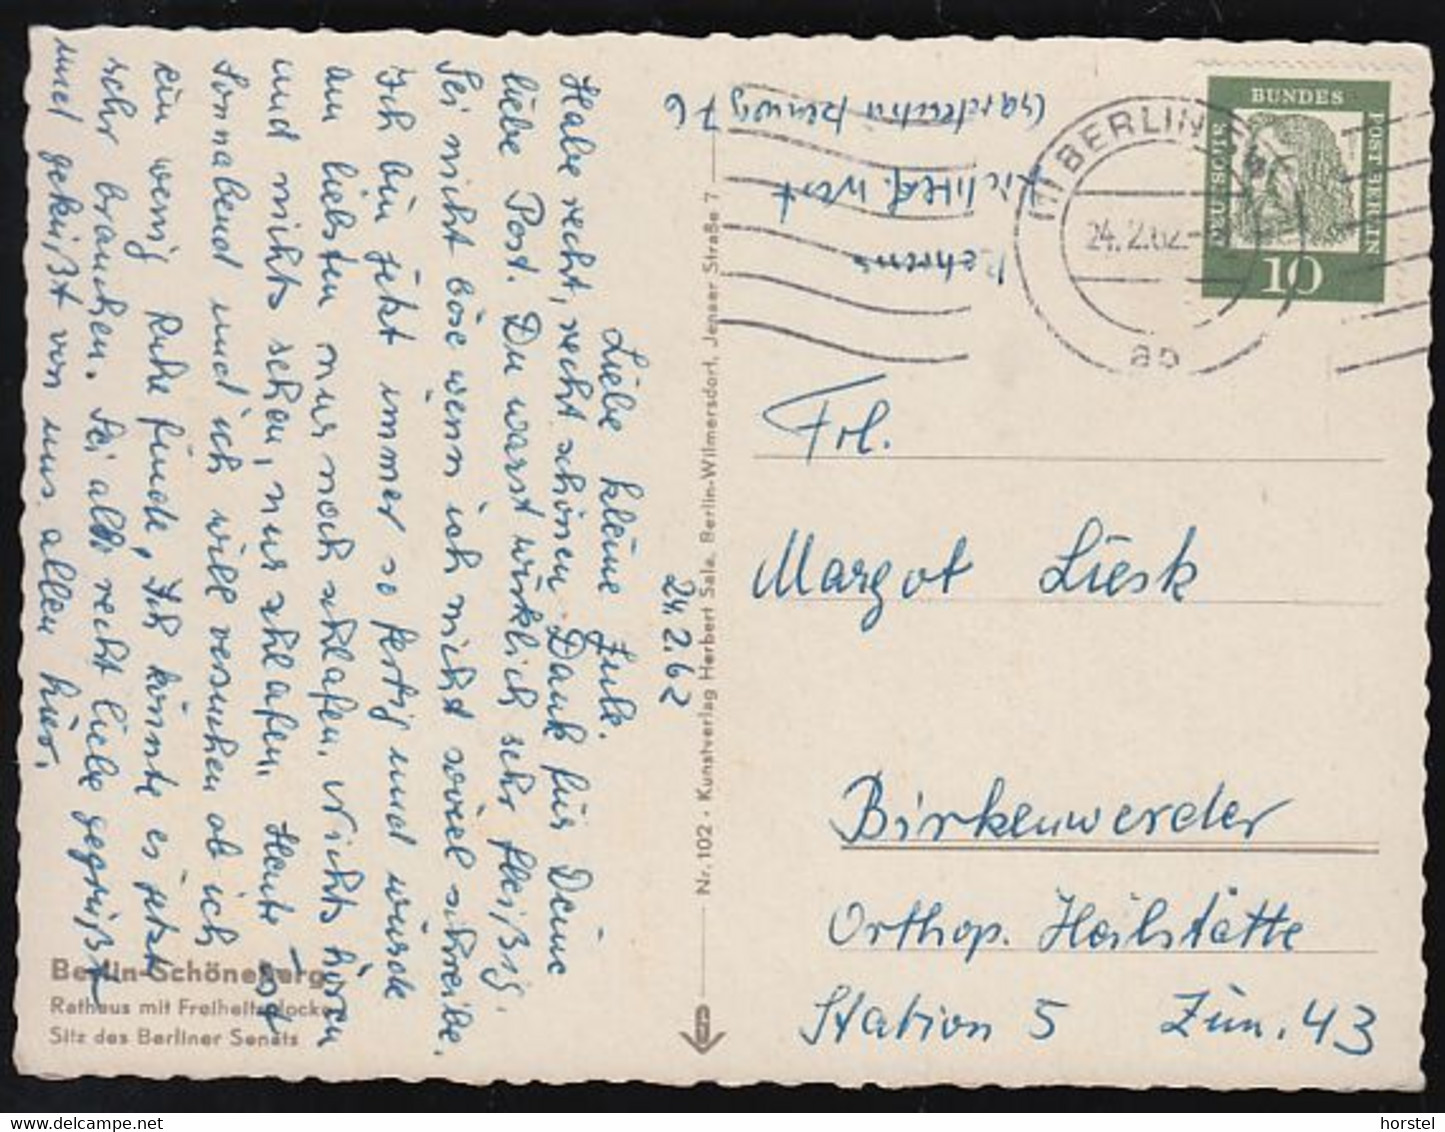 24.2.62
Liebe kleine Jule.
Habe recht, recht schönen Dank für Deine
liebe Post. Du warst wirklich sehr fleißig.
Sei nicht böse wenn ich nicht soviel schreibe.
Ich bin jetzt immer so fertig und würde
am liebsten nur noch schlafen. Nichts hören
und nichts sehen, nur schlafen. Heute ist
Sonnabend und ich will versuchen ob ich
ein wenig Ruhe finde, Ich könnte es jetzt
sehr brauchen. Sei alle recht liebe gegrüßt
und geküßt von uns allen hier.
Berlin-Schöneberg
Rathaus mit Freiheitsglocke
Sitz des Berliner Senats
Nr. 102 · Kunstverlag Herbert Sala, Berlin-Wilmersdorf, Jenaer Straße 7
Behrens
Lichterf. West
76
BERLIN
24.2.62
ap
BUNDES
POST BERLIN
DEUTSCHE
10
Frl.
Margot Liesk
Birkenwerder
Orthop. Heilstätte
Station 5 Zim. 43
www.delcampe.net
horstel